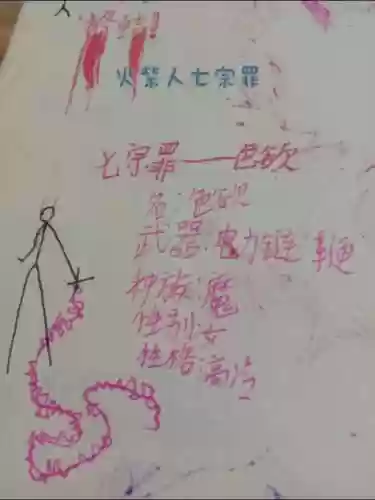 火柴人七宗罪
七宗罪——色欲
名:色欲
武器:电力链鞭
种族:魔
性别:女
性格:高冷